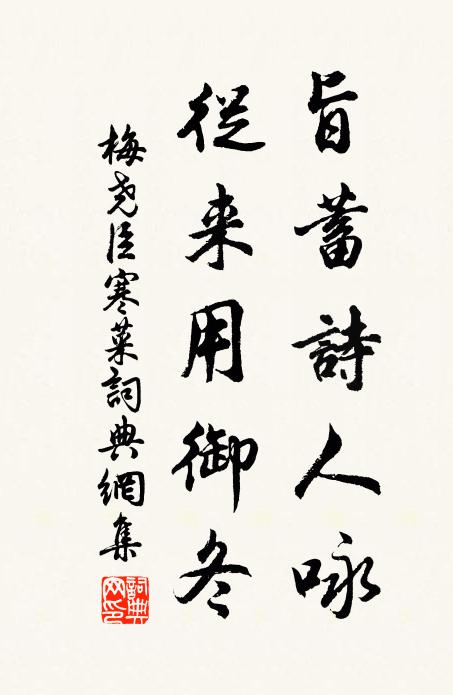 旨蓄詩人咏
從来用御冬
梅尧臣寒菜詞典網集
詞典网印